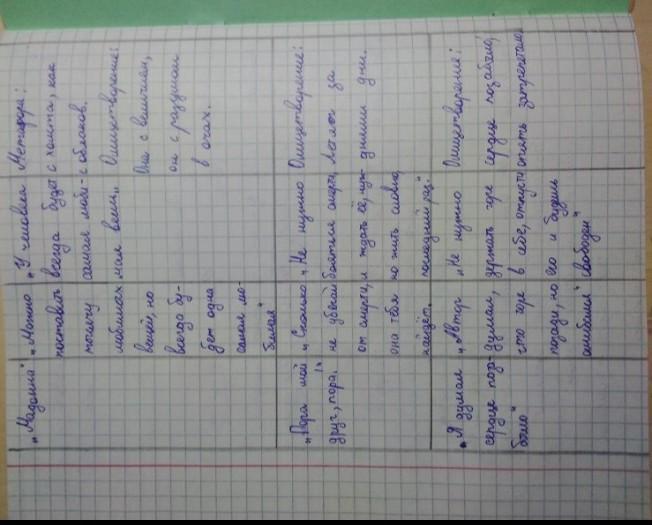 „Мадонна"
„Можно
поставить
тысячу
любимых
вещей, но
всегда бу-
дет одна
самая лю-
бимая"
„У человека
всегда будет
самая люби-
мая вещь„
Метафора:
с холста, как
с облаков.
Олицетворение:
Она с величием,
он с разумом
в очах.
„Пора мой
друг, пора!"
„Сколько
не убегай
от смерти,
она тебя
найдёт.
„Не нужно
бояться смерти,
и ждать её, нуж-
но жить словно
последний раз"
Олицетворение:
Летят за
днями дни.
„Я думал
сердце поза-
было"
„Автор
думал,
что горе
позади, но
ошибался"
„Не нужно
держать горе
в себе, отпусти
его и будешь
свободен"
Олицетворение:
сердце позабыло,
опять затрепетало.